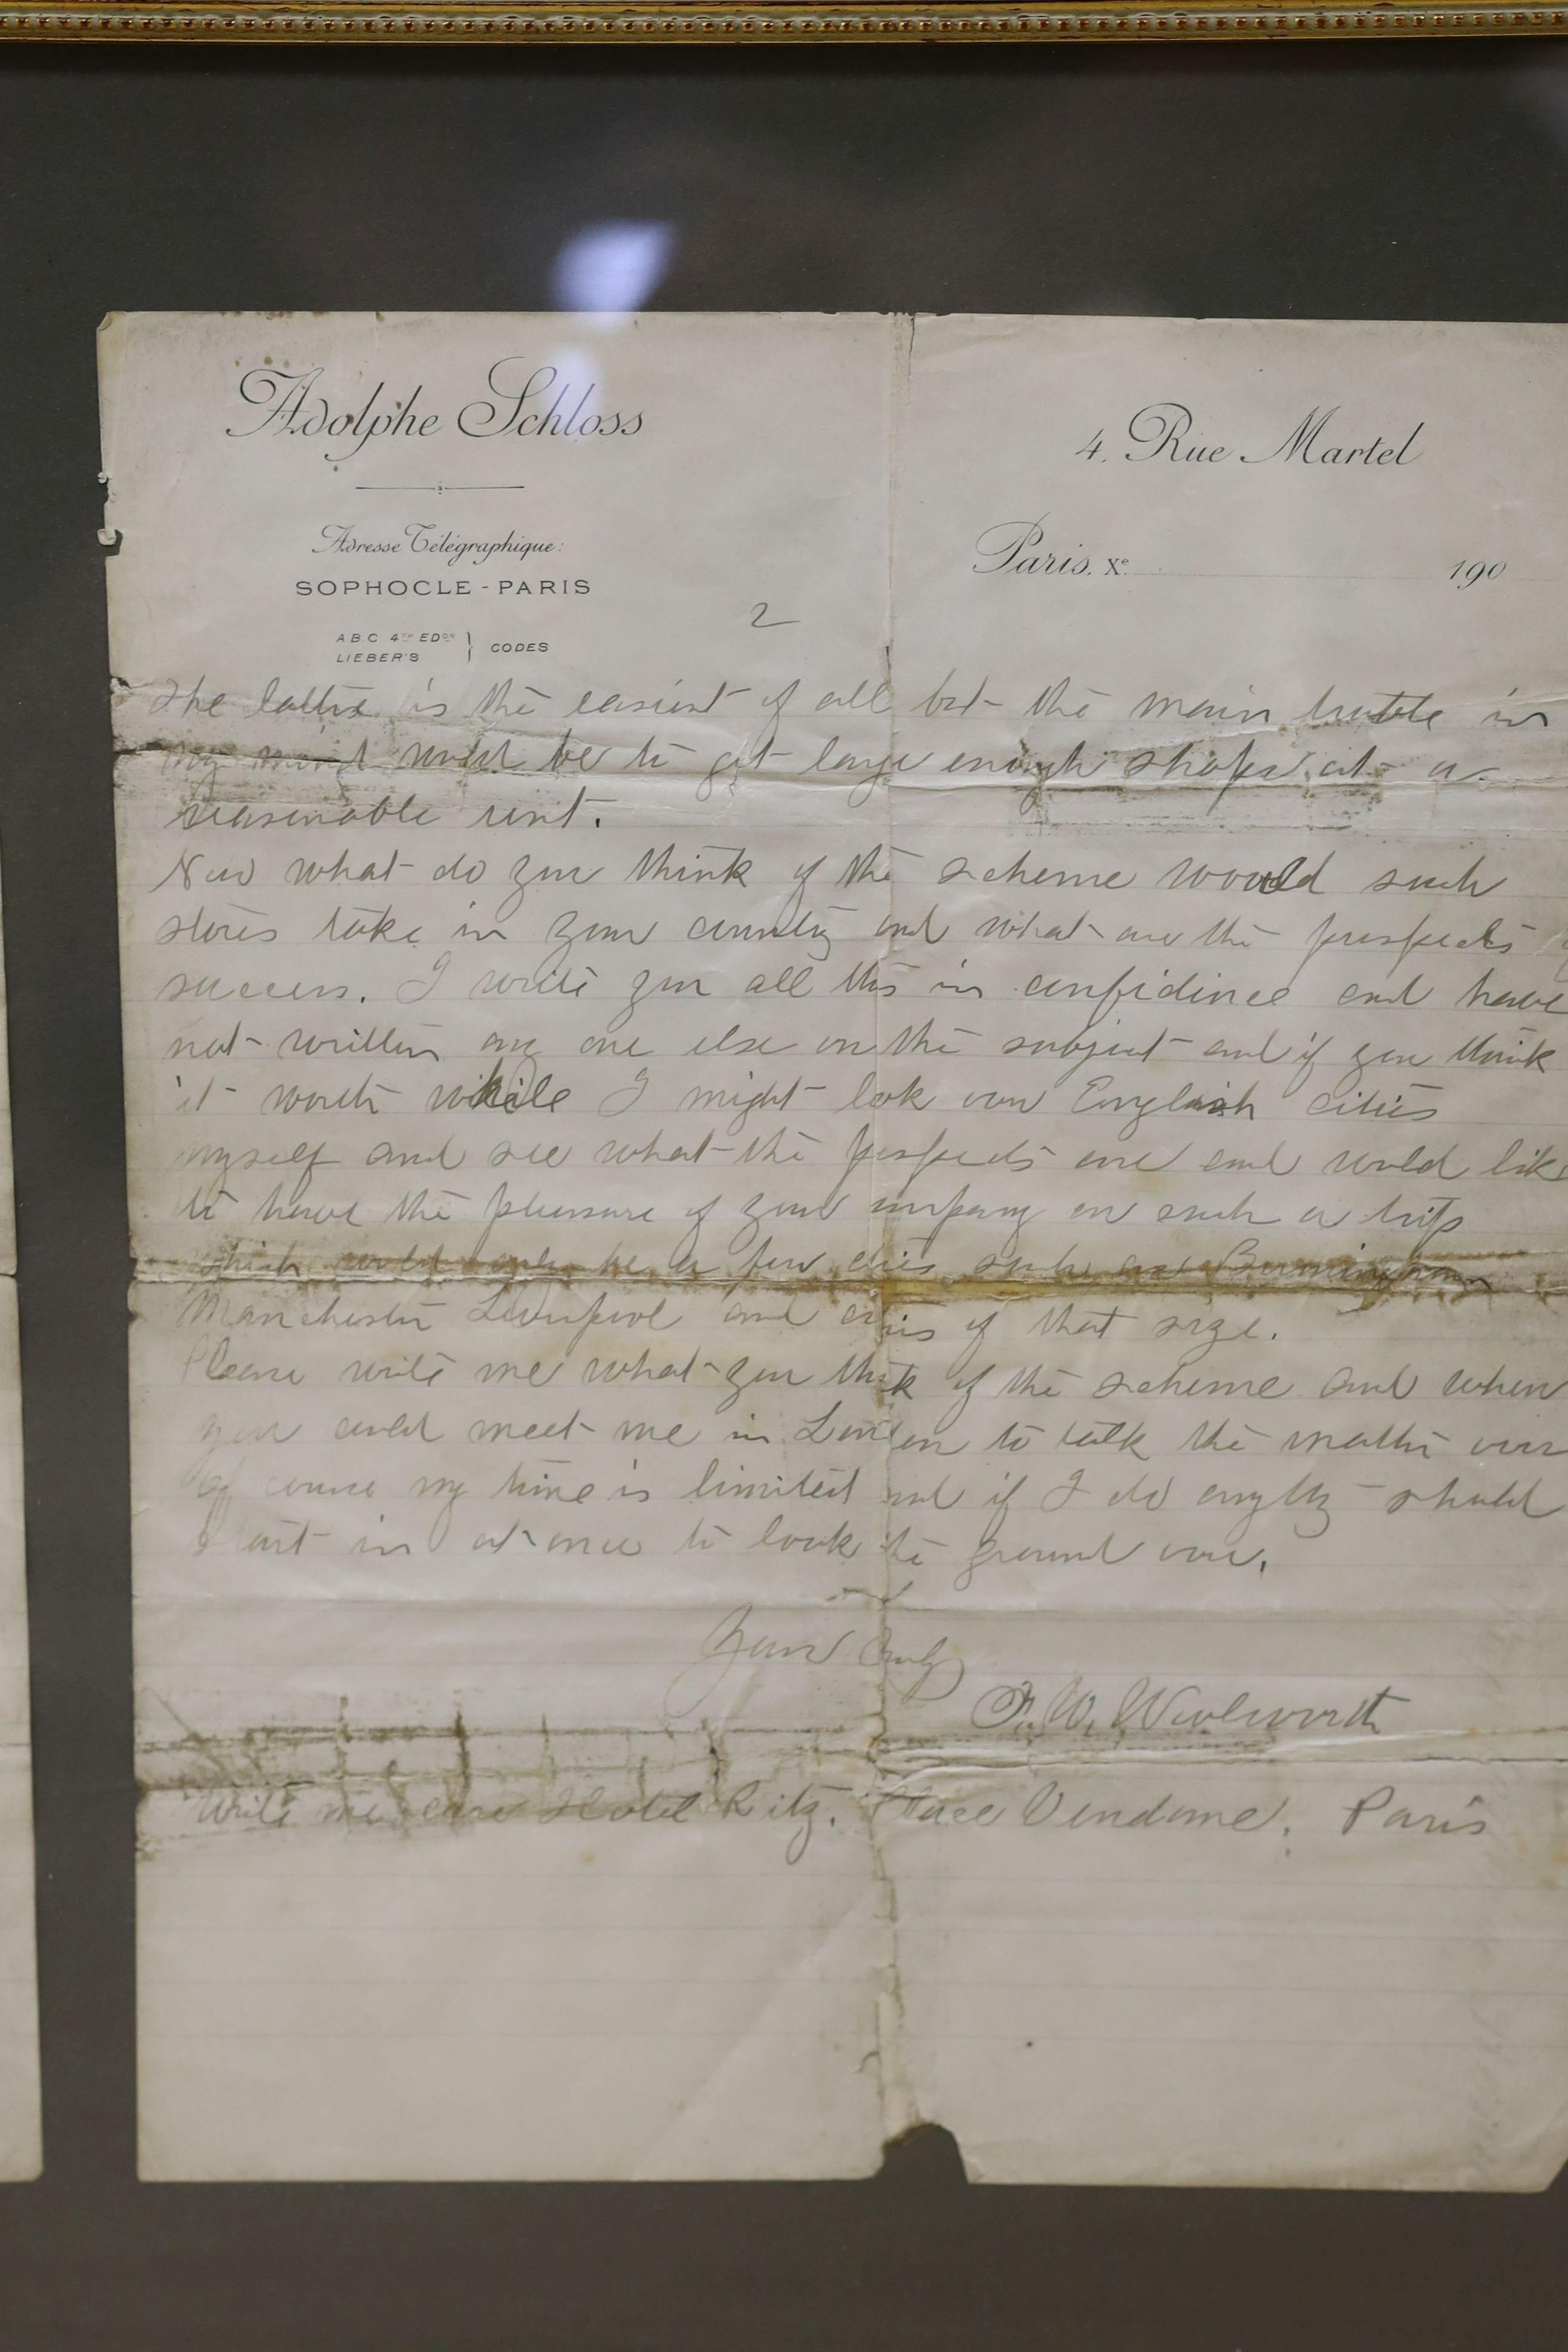 Adolphe Schloss
4. Rue Martel
Adresse Télégraphique:
SOPHOCLE - PARIS
Paris. Xe. 190
ABC 4TH EDON
LIEBER'S } CODES
2
The latter is the easiest of all but the main trouble in
my mind would be to get large enough shops at a
reasonable rent.
Now what do you think of the scheme would such
stores take in your country and what are the prospects
success. I write you all this in confidence and have
not written any one else on the subject and if you think
it worth while I might look over English cities
myself and see what the prospects are and would like
to have the pleasure of your company on such a trip
which would only be a few cities such as Birmingham
Manchester Liverpool and cities of that size.
Please write me what you think of the scheme and when
you could meet me in London to talk the matter over
of course my time is limited and if I do anything should
start in at once to look the ground over.
Yours truly
F. W. Woolworth
Write me care Hotel Ritz. Place Vendome. Paris